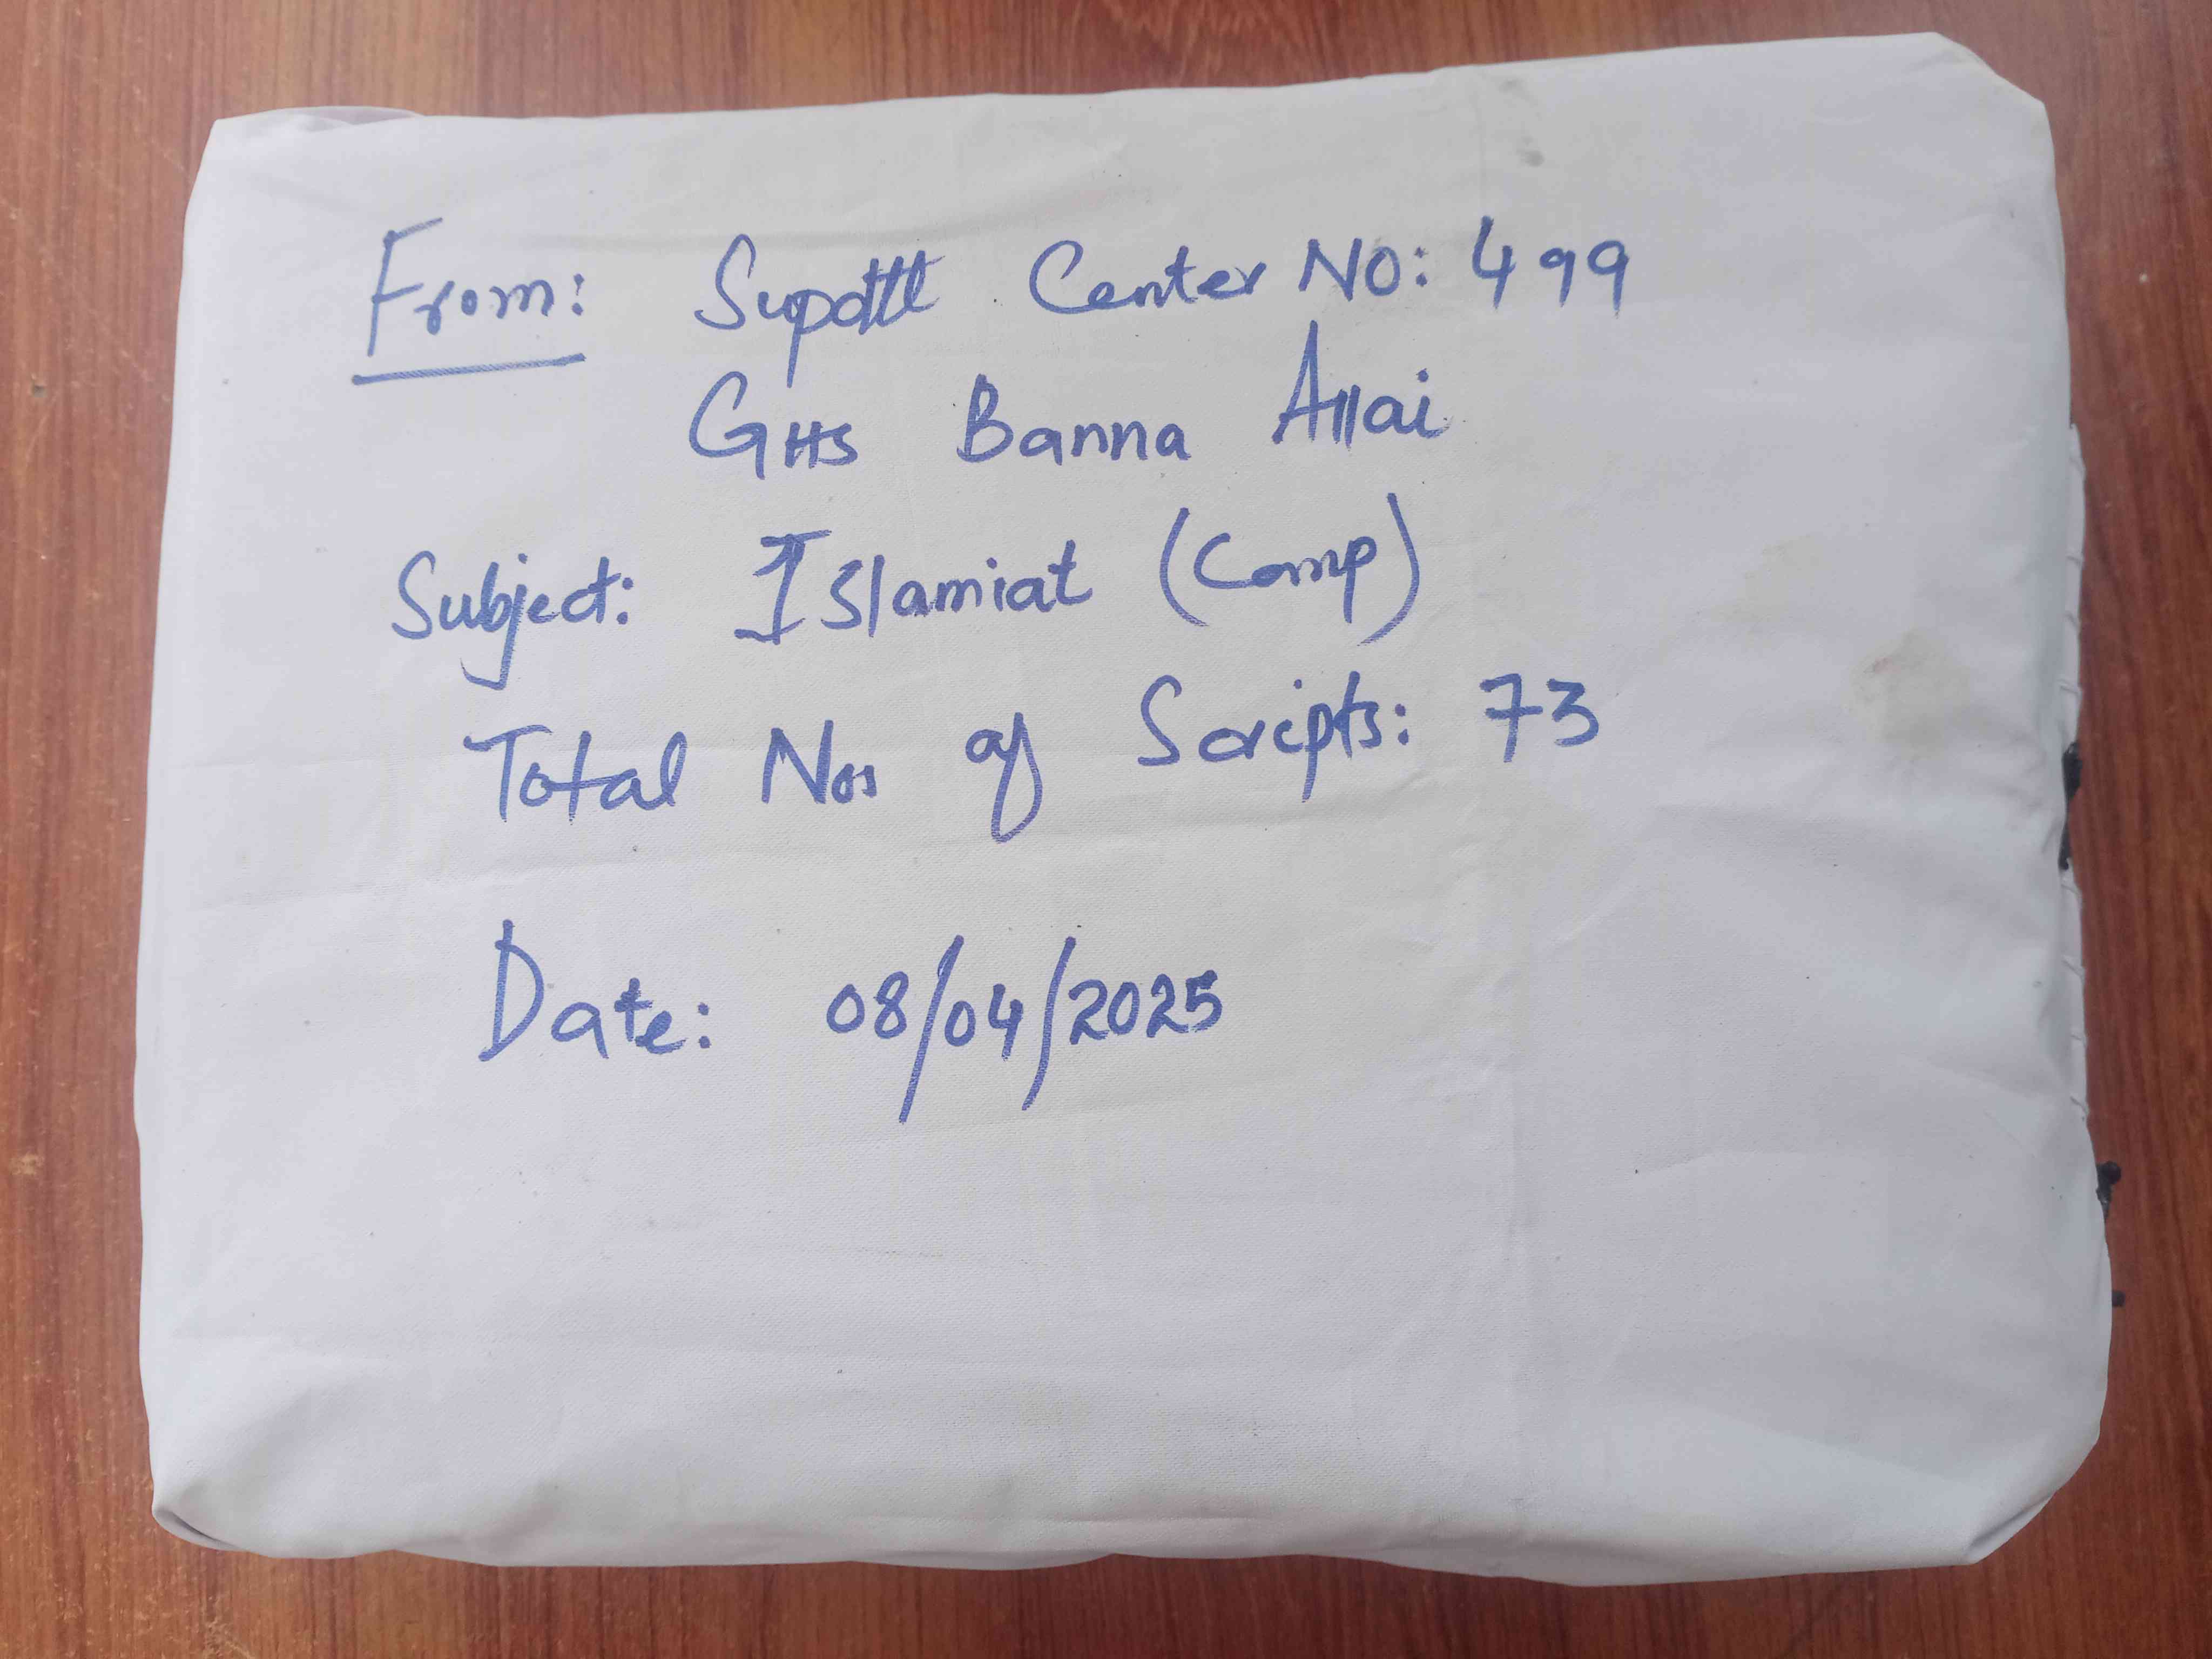 From: Supdtt Center NO: 499
GHS Banna Allai
Subject: Islamiat (Comp)
Total Nos of Scripts: 73
Date: 08/04/2025